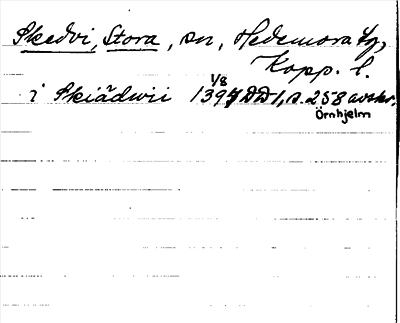 Skedvi, Stora, sn, Hedemora tg,
Kopp. l.
i Skiädwii 1/8 1394 DD 1, s. 258 avskr.
Örnhjelm